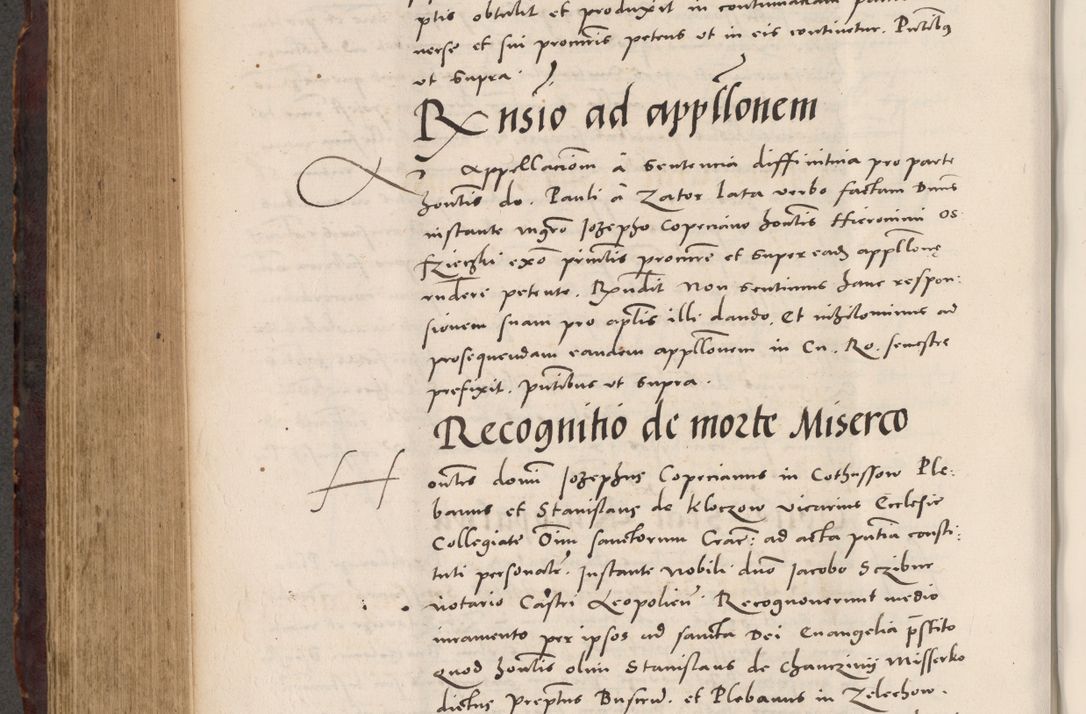 ptis obtulit et produxit in continuatam
verse et sui procuris petens ut in eis continetur. Pntibus
ut supra.
Rnsio ad appllonem
Appellacioni a sententia diffinitiva pro parte
honlis do. Pauli a Zator lata verbo factam Dnus
instante mgro Iozepho Copeciano honlis Hieronimi Os-
frzieczki exo principalis procure et super eadem appllone
rndere petente. Rndit non sentimus hanc respon:
sionem suam pro aplis illi dando. Et nihilominus ad
prosequendam eandem appllonem in Cu. Ro. semestre
prefixit. pntibus ut supra.
Recognitio de morte Miserco
H
onles domi Iozephus Copecianus in Cothussow Ple:
banus et Stanislaus de Kloczow vicarius Ecclesie
Collegiate Oim sanctorum Crac: ad acta pntia consti:
tuti personalr. Instante nobili dno Iacobo Sczibur
notario Castri Leopolien. Recognoverunt medio
iuramento per ipsos ad sancta Dei Evangelia pstito
quod honlis olim Stanislaus de Chanczinij Misserko
dictus preptus Buscen. et Plebanus in Zelechow.